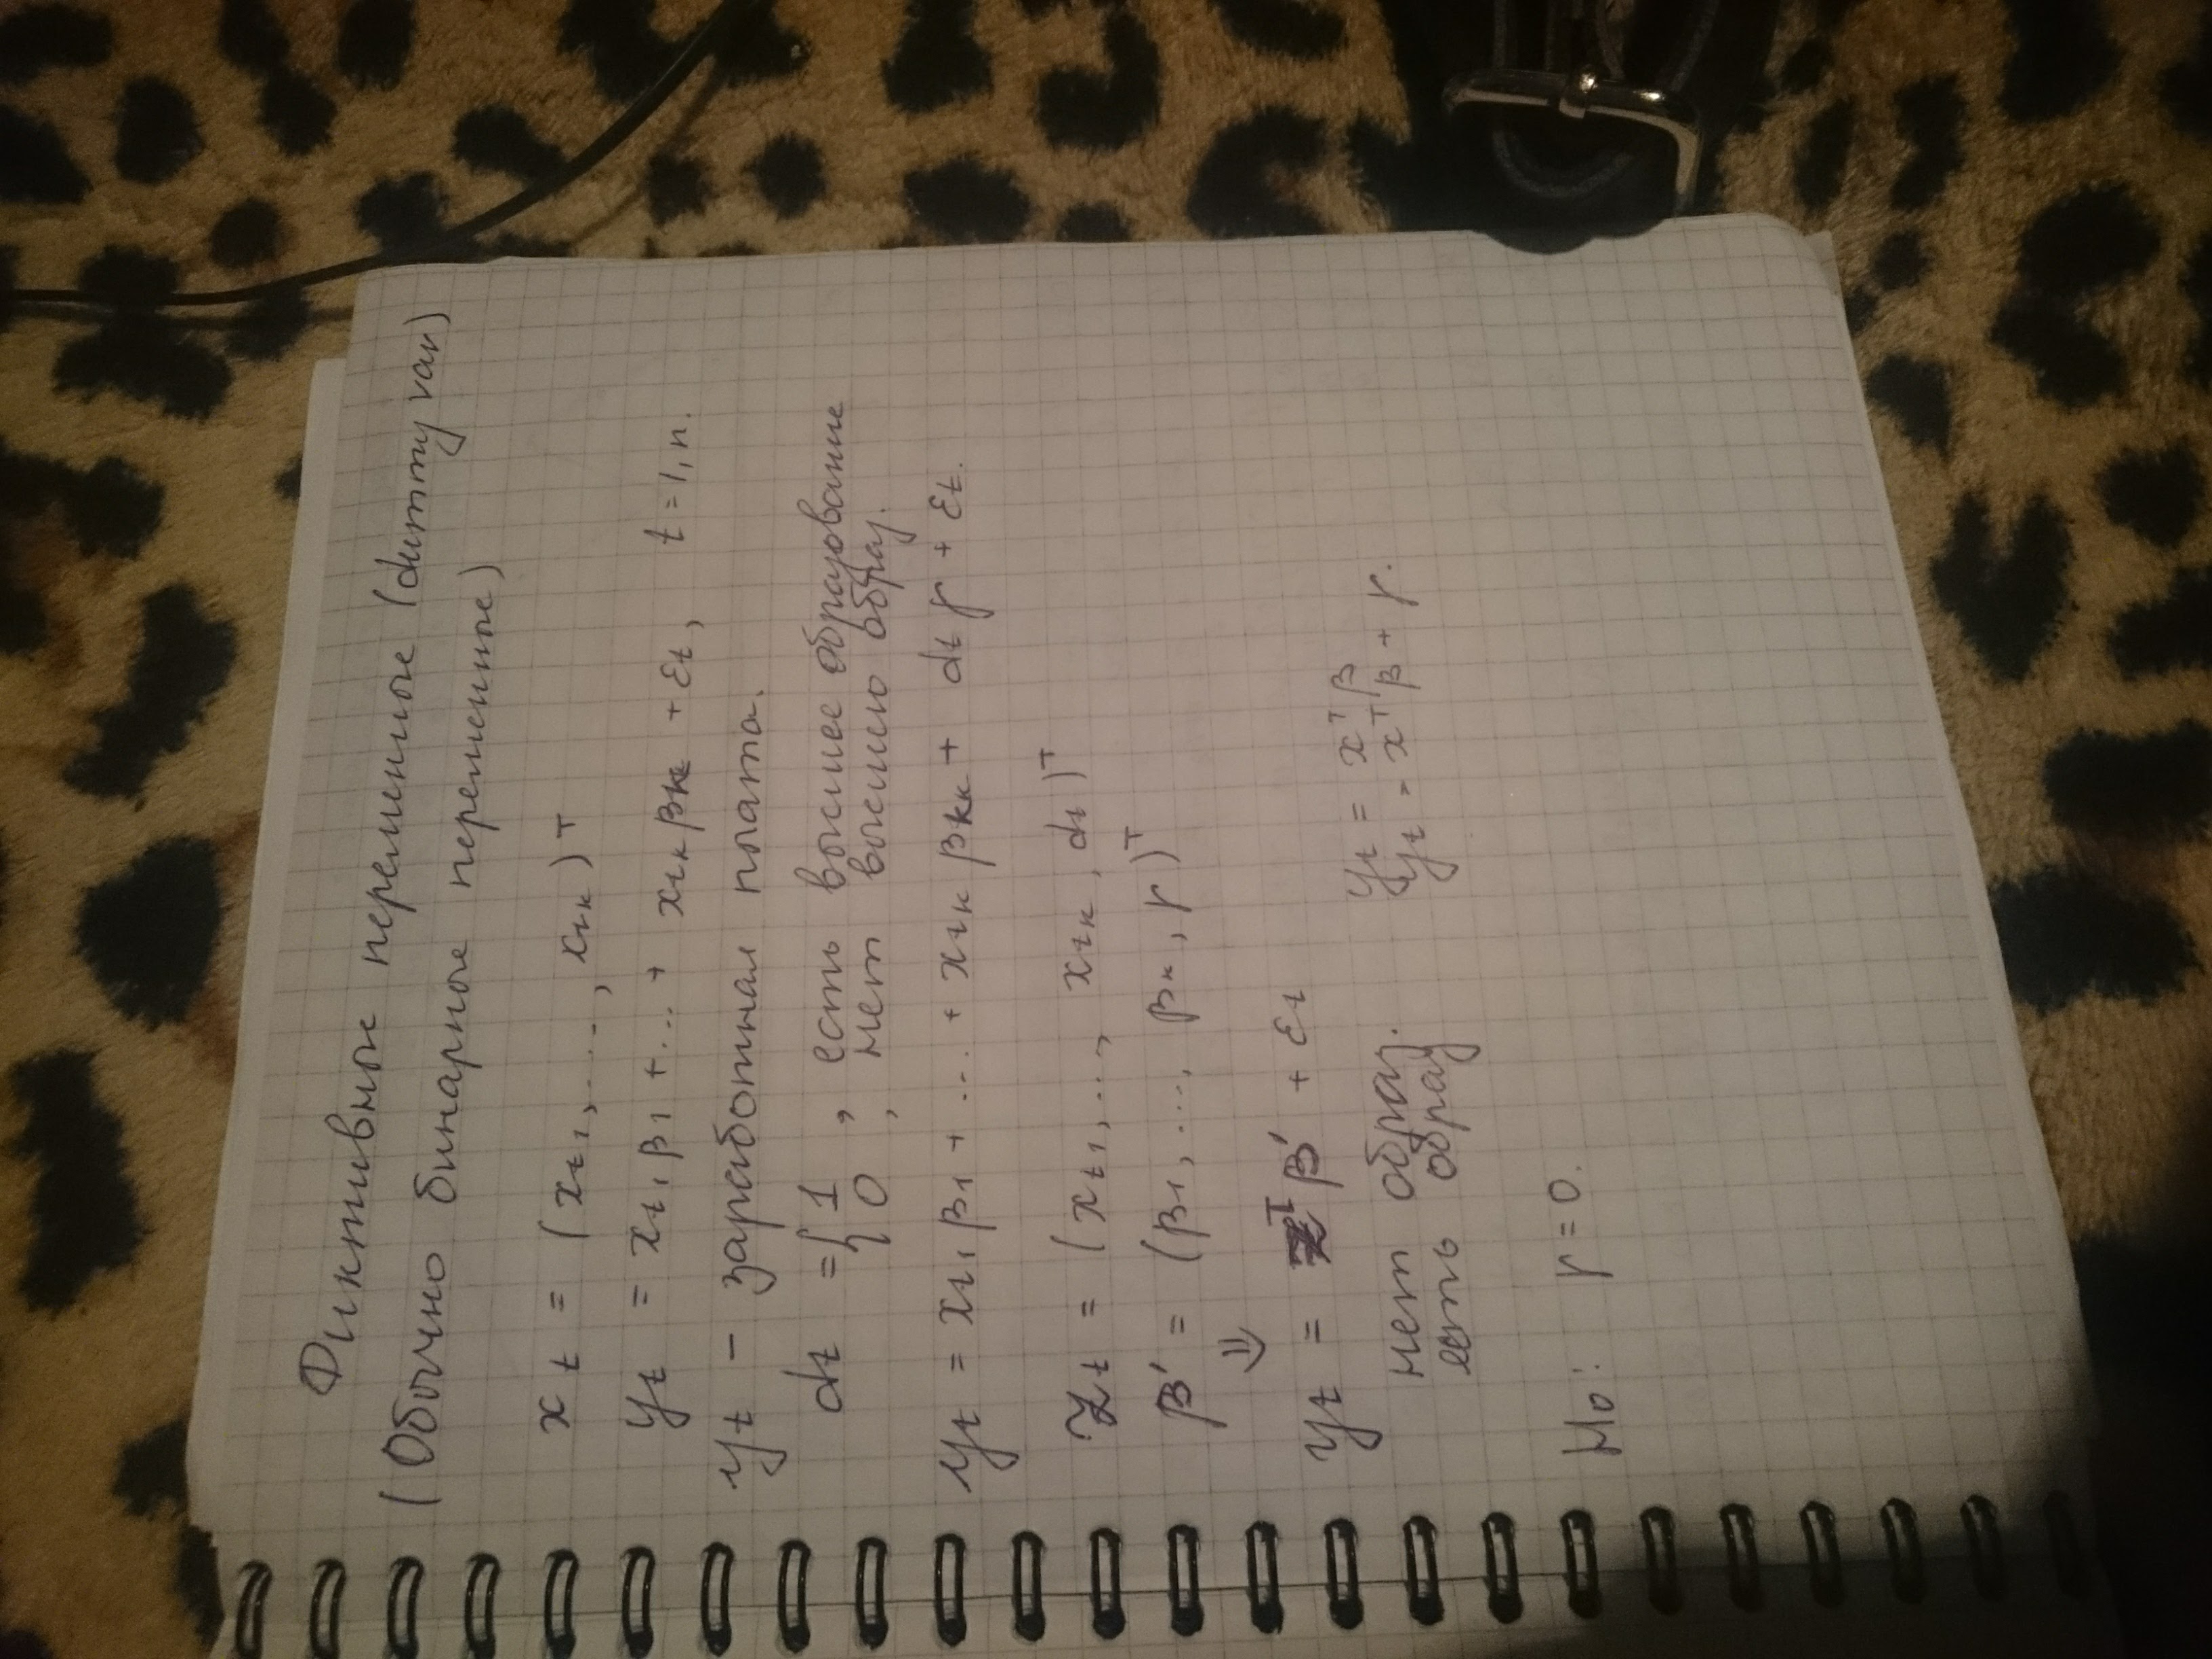 Фиктивные переменные (dummy var)
(Обычно бинарные переменные)
xt = (xt1, ..., xtк)ᵀ
yt = xt1β1 + ... + xtкβк + εt, t = 1, n.
yt – заработная плата.
dt = {1, есть высшее образование
0, нет высшего образ.
yt = xt1β1 + ... + xtкβк + dtγ + εt.
zt = (xt1, ..., xtк, dt)ᵀ
β' = (β1, ..., βк, γ)ᵀ
⇓
yt = zᵀβ' + εt
нет образ. yt = xᵀβ
есть образ yt = xᵀβ + γ.
H0: γ = 0.